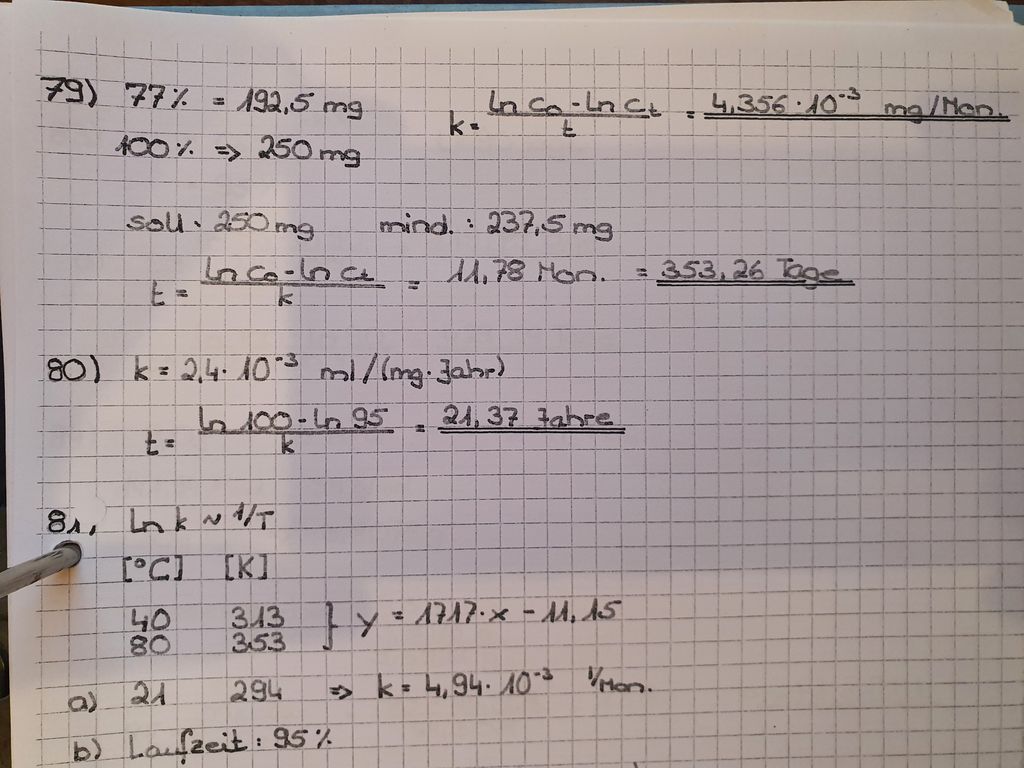 79) 77% = 192,5 mg
k = (ln c₀ - ln cₜ)/t = 4,356 · 10⁻³ mg/Mon.
100% => 250 mg
soll · 250 mg mind. : 237,5 mg
t = (ln c₀ - ln cₜ)/k = 11,78 Mon. = 353,26 Tage
80) k = 2,4 · 10⁻³ ml/(mg · Jahr)
t = (ln 100 - ln 95)/k = 21,37 Jahre
81, ln k ~ 1/T
[°C] [K]
40 313
80 353 } y = 1717 · x - 11,15
a) 21 294 => k = 4,94 · 10⁻³ 1/Mon.
b) Laufzeit : 95%